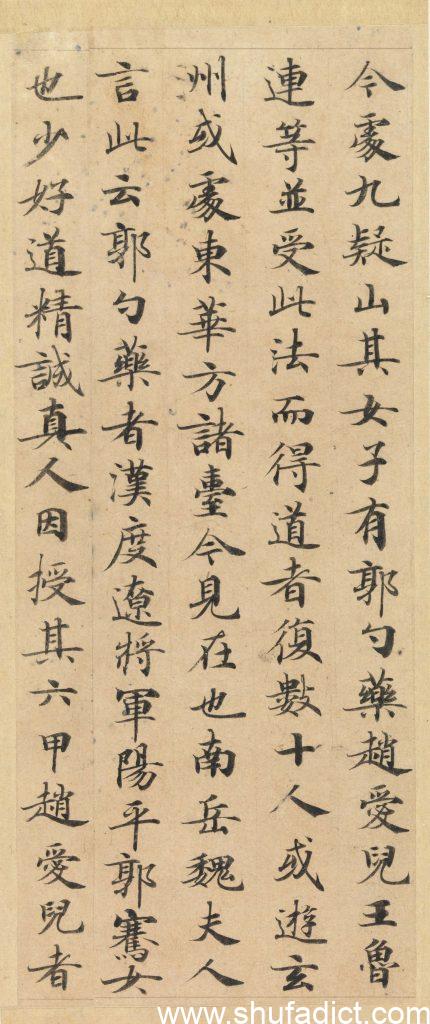 今處九疑山其女子有郭勺藥趙愛兒王魯
連等並受此法而得道者復數十人或遊玄
州或處東華方諸臺今見在也南岳魏夫人
言此云郭勺藥者漢度遼將軍陽平郭騫女
也少好道精誠真人因授其六甲趙愛兒者
www.shufadict.com